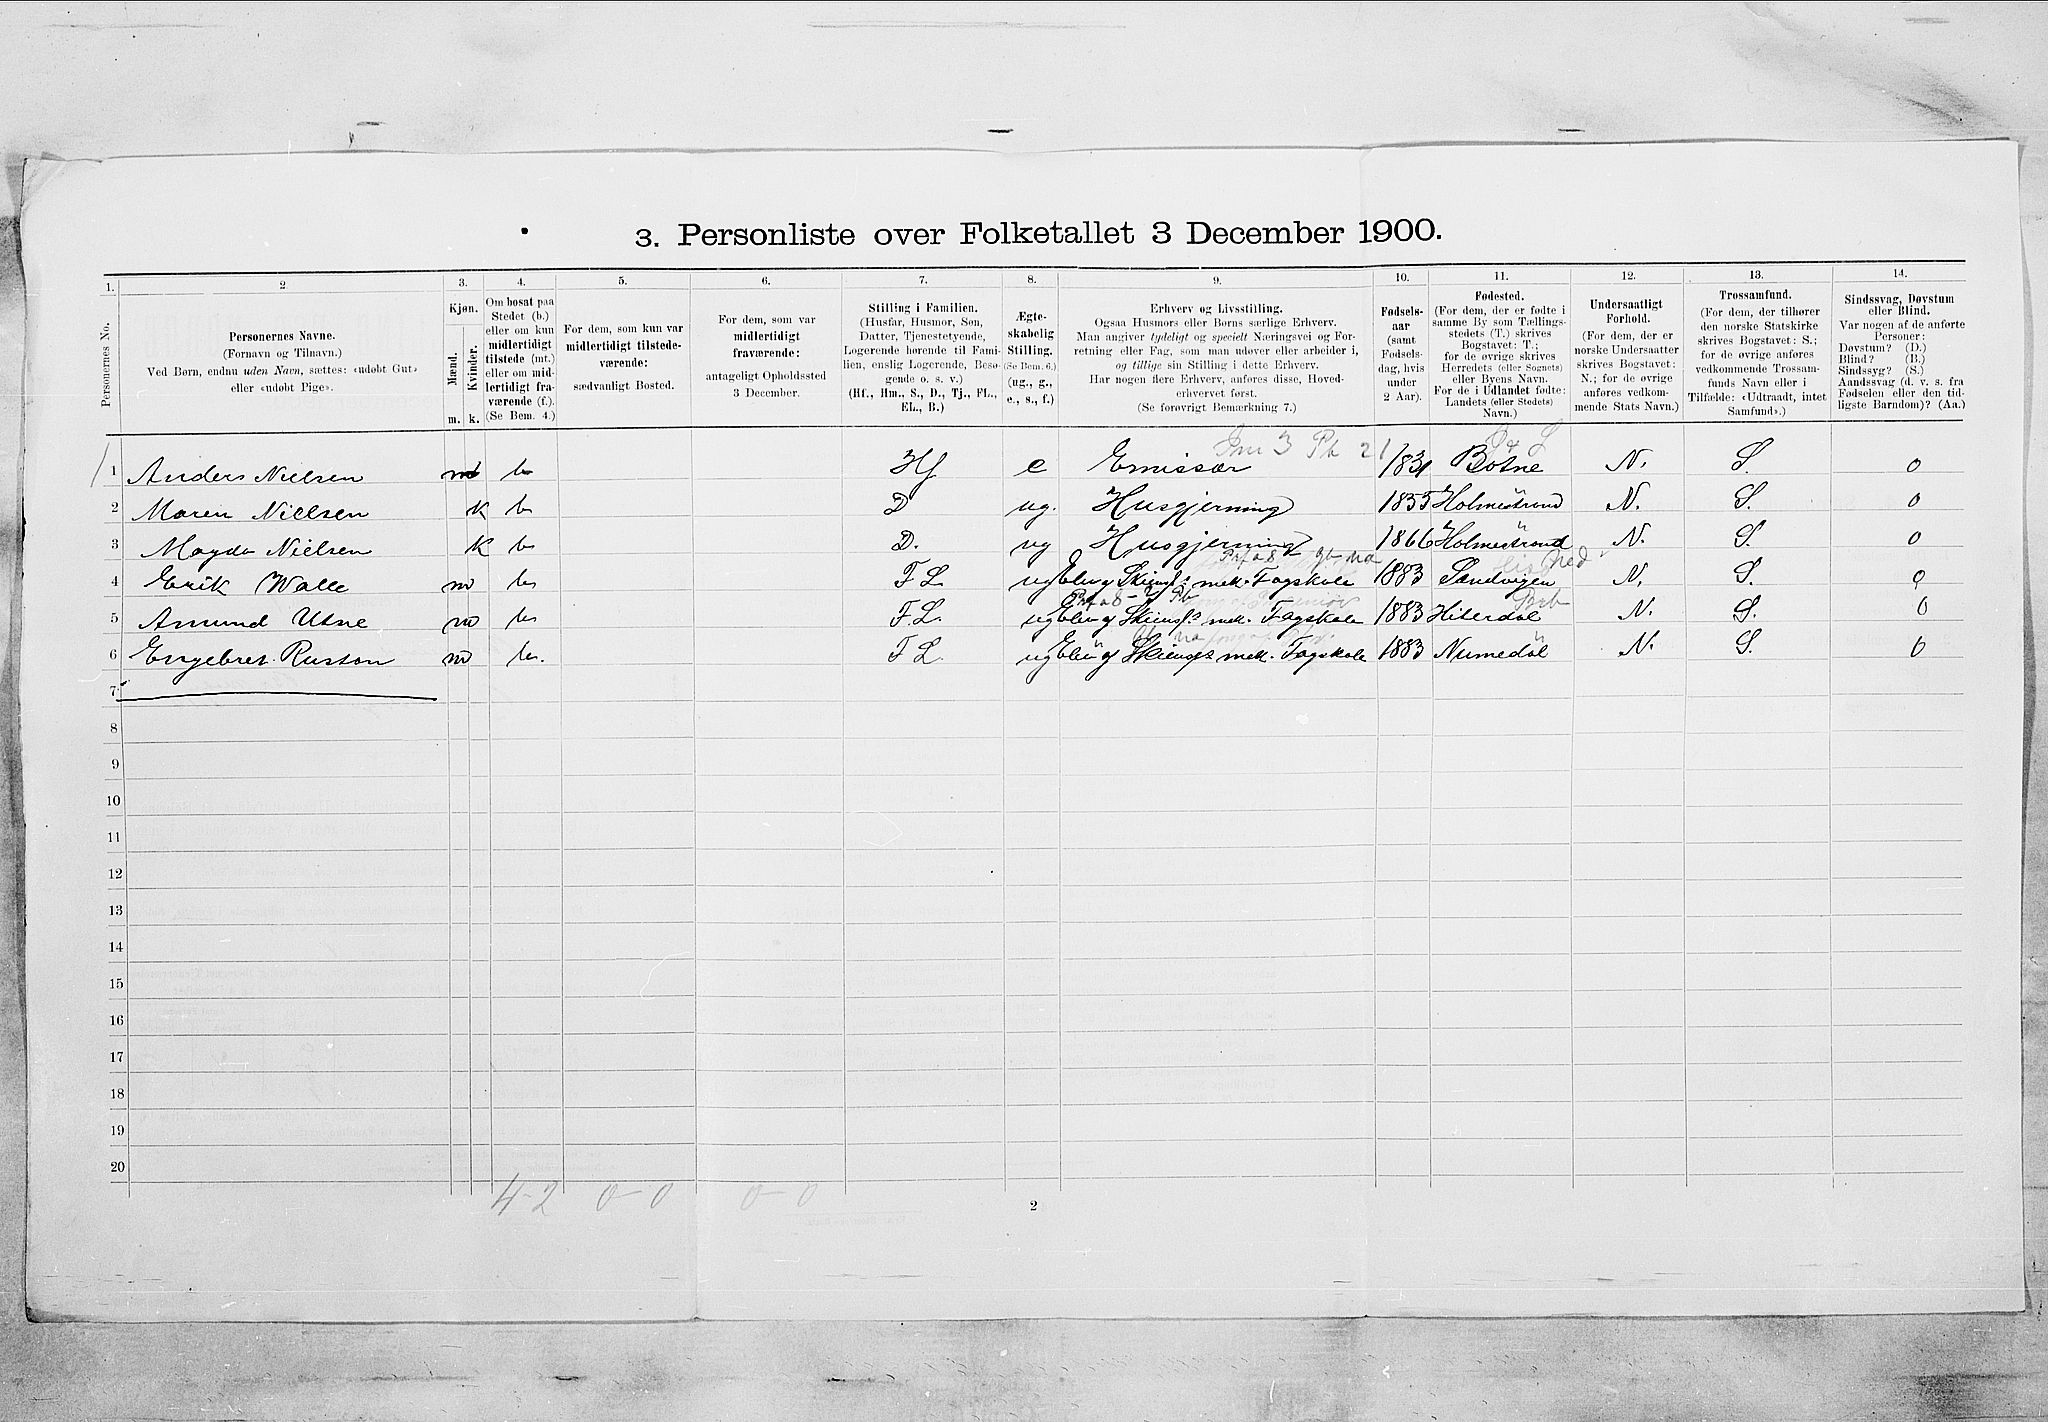 3. Personliste over Folketallet 3 December 1900.
1. 2 3. 4. 5. 6. 7. 8. 9. 10. 11. 12. 13. 14.
Personernes No.
Personernes Navne.
(Fornavn og Tilnavn.)
Ved Børn, endnu uden Navn, sættes: «udøbt Gut»
eller «udøbt Pige».
Kjøn.
Mænd. Kvinder.
m. k.
Om bosat paa
Stedet (b.)
eller om kun
midlertidigt
tilstede (mt.)
eller om mid-
lertidigt fra-
værende (f.).
(Se Bem. 4.)
For dem, som kun var
midlertidigt tilstede-
værende:
sædvanligt Bosted.
For dem, som var
midlertidigt
fraværende:
antageligt Opholdssted
3 December.
Stilling i Familien.
(Husfar, Husmor, Søn,
Datter, Tjenestetyende,
Logerende hørende til Fami-
lien, enslig Logerende, Besø-
gende o. s. v.)
(Hf., Hm., S., D., Tj., FL.,
EL., B.)
Ægte-
skabelig
Stilling.
(Se Bem. 6.)
(ug., g.,
e., s., f.)
Erhverv og Livsstilling.
Ogsaa Husmors eller Børns særlige Erhverv.
Man angiver tydeligt og specielt Næringsvei og For-
retning eller Fag, som man udøver eller arbeider i,
og tillige sin Stilling i dette Erhverv.
Har nogen flere Erhverv, anføres disse, Hoved-
erhvervet først.
(Se forøvrigt Bemærkning 7.)
Fødsels-
aar
(samt
Fødsels-
dag, hvis
under
2 Aar).
Fødested.
(For dem, der er fødte i
samme By som Tællings-
stedets (T.) skrives
Bogstavet: T.;
for de øvrige skrives
Herredets (eller Sognets)
eller Byens Navn.
For de i Udlandet fødte:
Landets (eller Stedets)
Navn.)
Undersaatligt
Forhold.
(For dem, der er
norske Undersaatter
skrives Bogstavet:
N.; for de øvrige
anføres vedkom-
mende Stats Navn.)
Trossamfund.
(For dem, der tilhører
den norske Statskirke
skrives Bogstavet: S.;
for de øvrige anføres
vedkommende Trossam-
funds Navn eller i
Tilfælde: «Udtraadt, intet
Samfund».)
Sindssvag, Døvstum
eller Blind.
Var nogen af de anførte
Personer:
Døvstum? (D.)
Blind? (B.)
Sindssyg? (S.)
Aandssvag (d. v. s. fra
Fødselen eller den tid-
ligste Barndom)? (Aa.)
1 Anders Nielsen m b Hf e Emissær 1831 Botne N. S. 0
2 Maren Nielsen K b D ug. Husgjerning 1855 Holmestrand N. S. 0
3 Magda Nielsen K b D. ug Husgjerning 1866 Holmestrand N. S. 0
4 Erik Walle m b F L. ug Elev af Skiensfs mek. Fagskole 1883 Sandvigen N. S. 0
5 Amund Utne m b F L. ug Elev af Skiensfs mek. Fagskole 1883 Hiterdal N. S. 0
6 Engebret Rustan m b. F L. ug Elev af Skiensfs mek. Fagskole 1883 Numedal N. S. 0
7
8
9
10
11
12
13
14
15
16
17
18
19
20
4-2 0-0 0-0
2